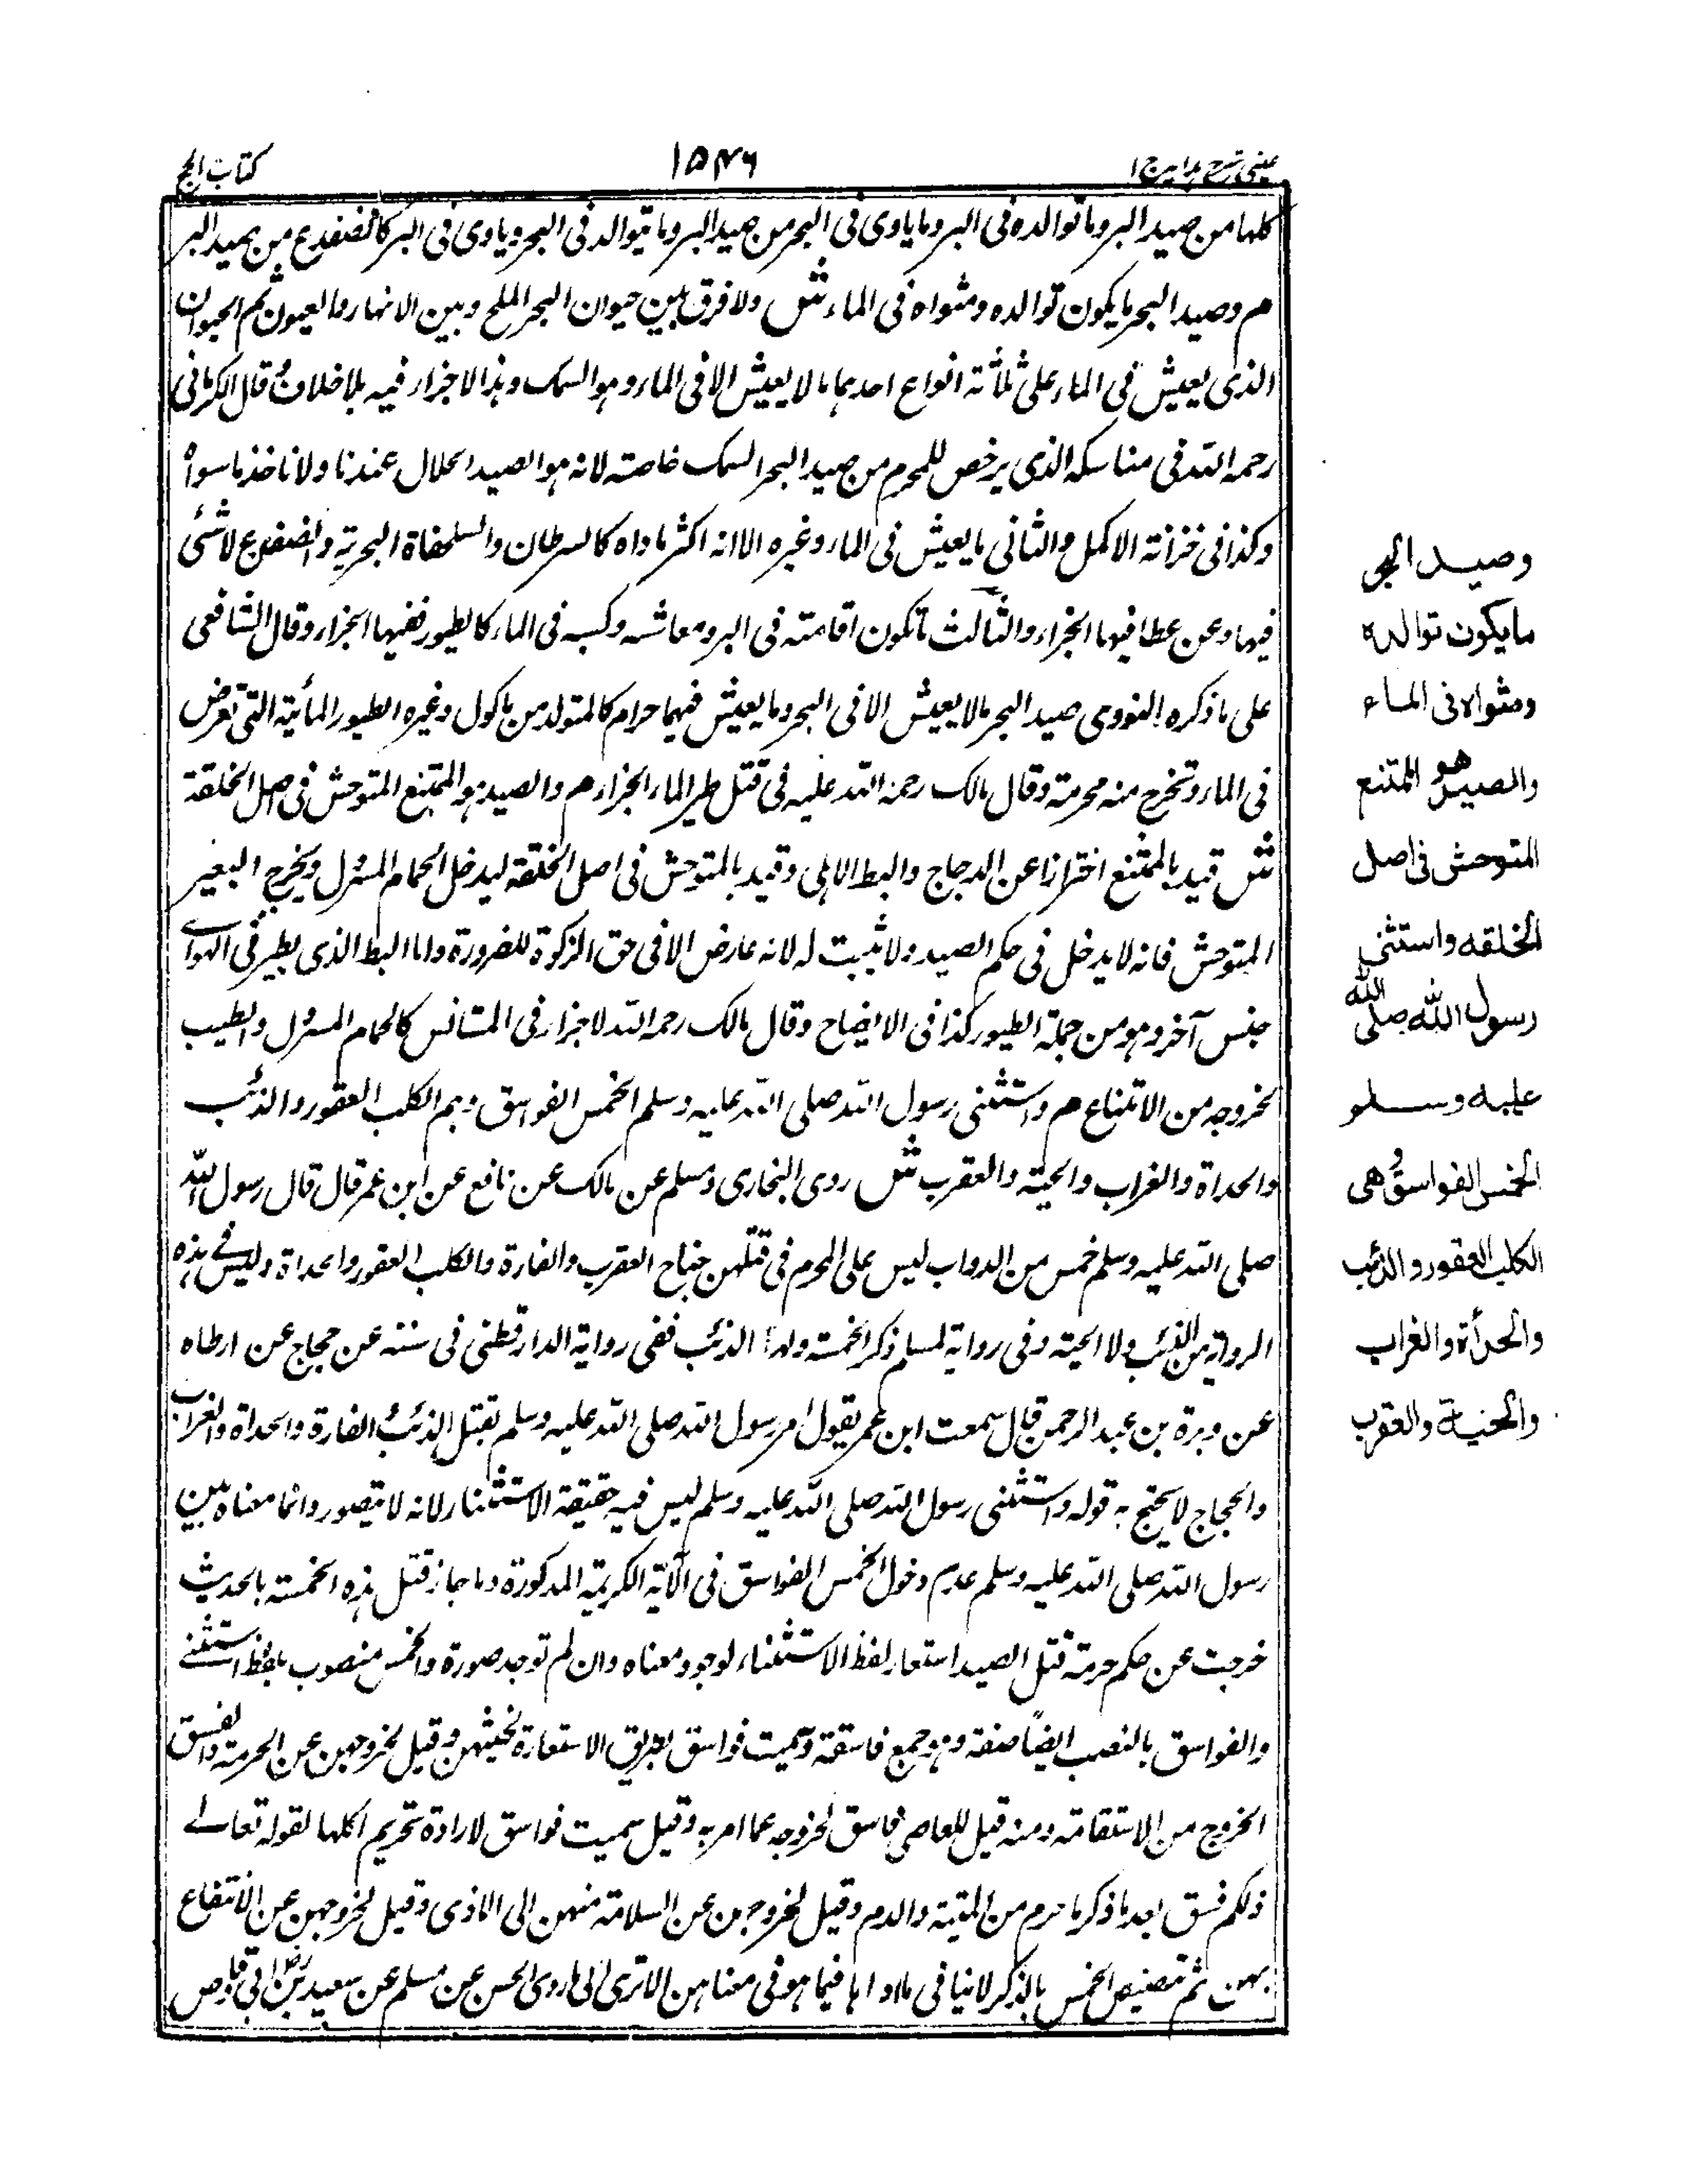 عینی شرح ہدایہ ج ۱
۱۵۴۶
کتاب الحج
کلہا من صید البر وما توالدہ فی البر وما یاوی فی البحر من صید البر وما یتوالد فی البحر ویاوی فی البر کالضفدع من صید البر
م وصید البحر ما یکون توالدہ ومثواہ فی الماء ش ولا فرق بین حیوان البحر الملح وبین الانہار والعیون ثم الحیوان
الذی یعیش فی الماء علی ثلثۃ انواع احدہما ما لا یعیش الا فی الماء وہو السمک وہذا لاجزاء فیہ بلا خلاف قال الکرمانی
رحمہ اللہ فی مناسکہ الذی یرخص للمحرم من صید البحر السمک خاصۃ لانہ ہو الصید الحلال عندنا ولا ناخذ ما سواہ
وکذا فی خزانۃ الاکمل والثانی ما یعیش فی الماء وغیرہ الا انہ اکثر ماواہ کالسرطان والسلحفاۃ البحریۃ والضفدع لا شئ
فیہا وعن عطا فیہا الجزاء والثالث ما تکون اقامتہ فی البر ومعاشہ وکسبہ فی الماء کالطیور ففیہا الجزاء وقال الشافعی
علی ما ذکرہ النووی صید البحر ما لا یعیش الا فی البحر وما یعیش فیہما حرام کالمتولد من ماکول وغیرہ الطیور المائیۃ التی تعرض
فی الماء وتخرج منہ محرمۃ وقال مالک رحمۃ اللہ علیہ فی قتل طیر الماء الجزاء م والصید ہو الممتنع المتوحش فی اصل الخلقۃ
ش قید بالممتنع احترازا عن الدجاج والبط الاہلی وقید بالمتوحش فی اصل الخلقۃ لیدخل الحمام المسرول ویخرج البعیر
المتوحش فانہ لا یدخل فی حکم الصید ولا یثبت لہ لانہ عارض الا فی حق الزکوۃ للضرورۃ واما البط الذی یطیر فی الہواے
جنس آخر وہو من جملۃ الطیور کذا فی الایضاح وقال مالک رحمہ اللہ لاجزاء فی المستانس کالحمام المسرول والطیب
لخروجہ من الامتناع م واستثنی رسول اللہ صلی اللہ علیہ وسلم الخمس الفواسق وہم الکلب العقور والذئب
والحداۃ والغراب والحیۃ والعقرب ش روی البخاری ومسلم عن مالک عن نافع عن ابن عمر قال قال رسول اللہ
صلی اللہ علیہ وسلم خمس من الدواب لیس علی المحرم فی قتلہن جناح العقرب والفارۃ والکلب العقور والحداۃ ولیس فے ہذہ
الروایۃ من الذئب ولا الحیۃ وفی روایۃ لمسلم ذکر الخمسۃ ولہذا الذئب ففی روایۃ الدارقطنی فی سننہ عن حجاج عن ارطاہ
عن وبرۃ بن عبدالرحمن قال سمعت ابن عمر یقول امر رسول اللہ صلی اللہ علیہ وسلم بقتل الذئب الفارۃ والحداۃ والغراب
والحجاج لا یحتج بہ قولہ واستثنی رسول اللہ صلی اللہ علیہ وسلم لیس فیہ حقیقۃ الاستثناء لانہ لا یتصور وانما معناہ بین
رسول اللہ صلی اللہ علیہ وسلم عدم دخول الخمس الفواسق فی الآیۃ الکریمۃ المذکورۃ وما جاز قتل ہذہ الخمسۃ بالحدیث
خرجت عن حکم حرمۃ قتل الصید استعار لفظ الاستثناء لوجود معناہ وان لم توجد صورۃ والخمس منصوب بلفظ استثنے
والفواسق بالنصب ایضاً صفۃ وہو جمع فاسقۃ وسمیت فواسق بطریق الاستعارۃ لخبثہن وقیل لخروجہن عن الحرمۃ والفسق
الخروج من الاستقامۃ ومنہ قیل للعاصی فاسق لخروجہ عما امر بہ وقیل سمیت فواسق لارادۃ تحریم اکلہا لقولہ تعالے
ذلکم فسق بعد ما ذکر ما حرم من المیتۃ والدم وقیل لخروجہن عن السلامۃ منہن الی الاذی وقیل لخروجہن عن الانتفاع
بہن ثم تنصیص الخمس بالذکر لا ینافی ما وراہا فیما ہو فی معناہن الا تری الی ما روی الحسن عن مسلم عن سعید بن ابی وقاص
وصید البحر
مایکون توالدہ
ومثواہ فی الماء
والصید ھو الممتنع
المتوحش فی اصل
الخلقہ واستثنی
رسول اللہ صلی اللہ
علیہ وسلم
الخمس الفواسق وھی
الکلب العقور والذئب
والحدأۃ والغراب
والحیۃ والعقرب